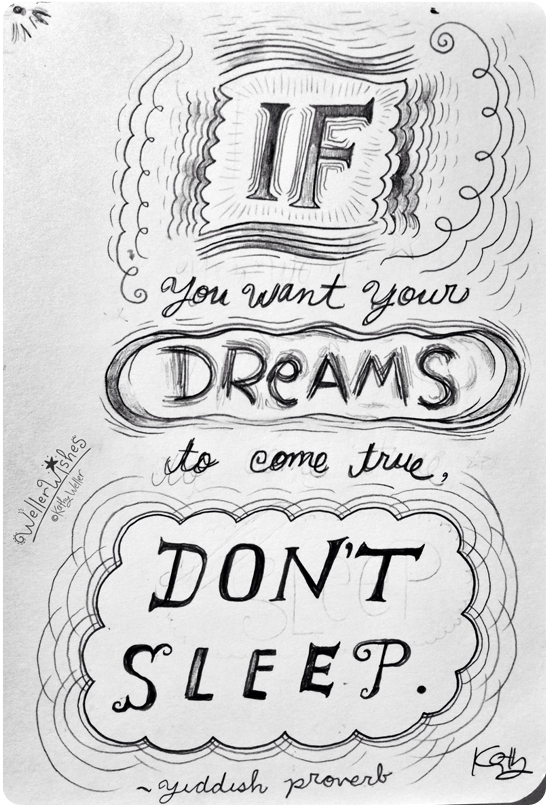 IF
you want your
DREAMS
to come true,
DON'T
SLEEP.
~ yiddish proverb
WellerWishes
©Kathy Weller
Kath